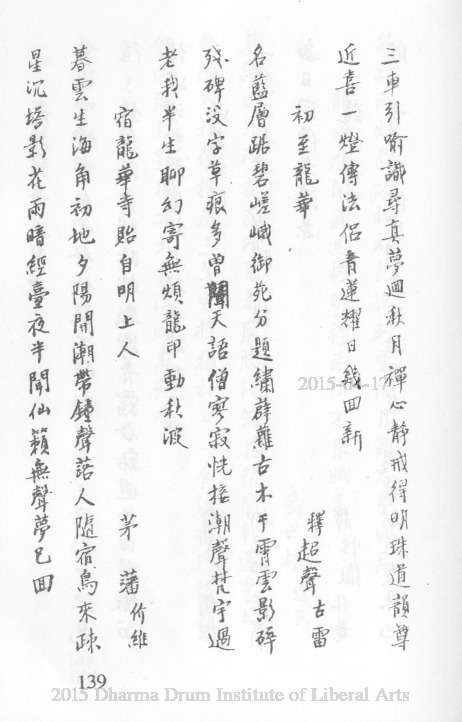 三車引喻識尋真夢迴秋月禪心靜戒得明珠道韻尊
近喜一燈傳法侶青蓮耀日幾回新
初至龍華
釋超聲古雷
名藍層踞碧嵯峨御苑分題繡薜蘿古木干霄雲影碎
殘碑沒字草痕多曾聞天語僧寥寂恍接潮聲梵宇過
老我半生聊幻寄無煩龍叩動秋波
宿龍華寺貽自明上人
茅藩价維
暮雲生海角初地夕陽開潮帶鐘聲落人隨宿鳥來疎
星沉塔影花雨暗經臺夜半聞仙籟無聲夢已回
139
2015 Dharma Drum Institute of Liberal Arts